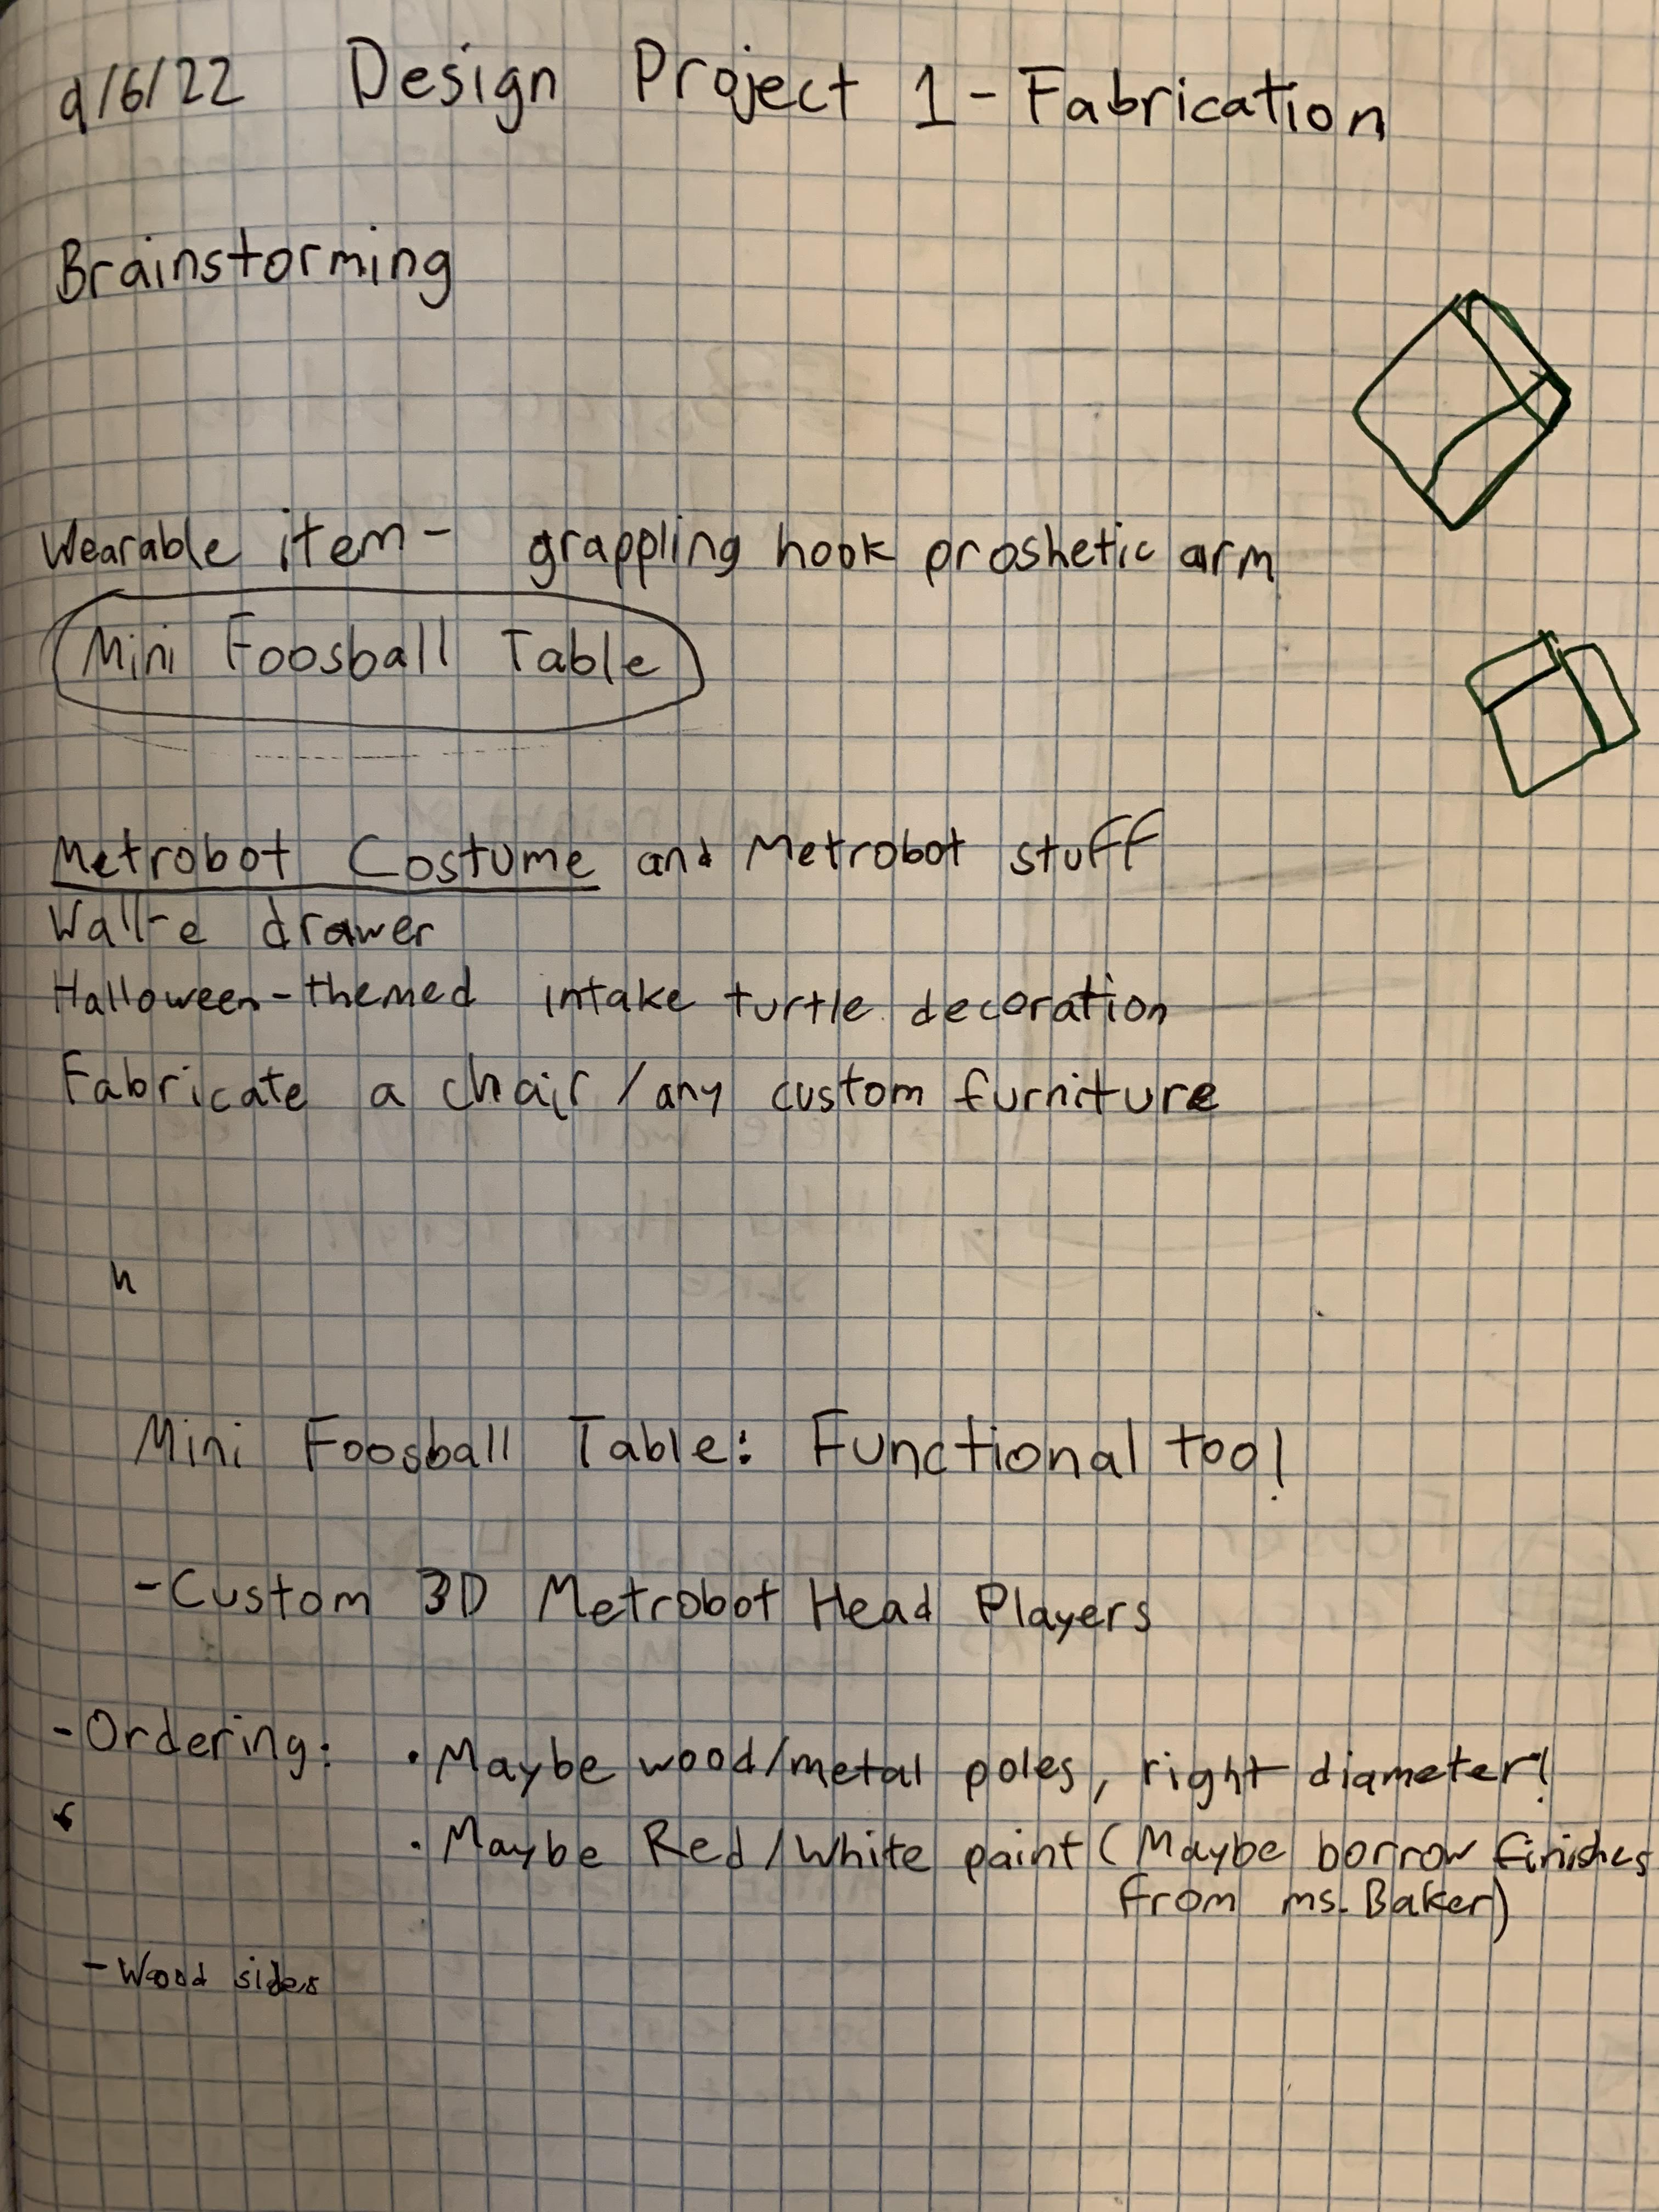 9/6/22 Design Project 1 - Fabrication
Brainstorming
Wearable item - grappling hook proshetic arm
Mini Foosball Table
Metrobot Costume and Metrobot stuff
Wall-e drawer
Halloween-themed intake turtle decoration
Fabricate a chair / any custom furniture
n
Mini Foosball Table: Functional tool
- Custom 3D Metrobot Head Players
- Ordering: • Maybe wood/metal poles, right diameter!
• Maybe Red/White paint (Maybe borrow finishes
from ms. Baker)
- Wood sides